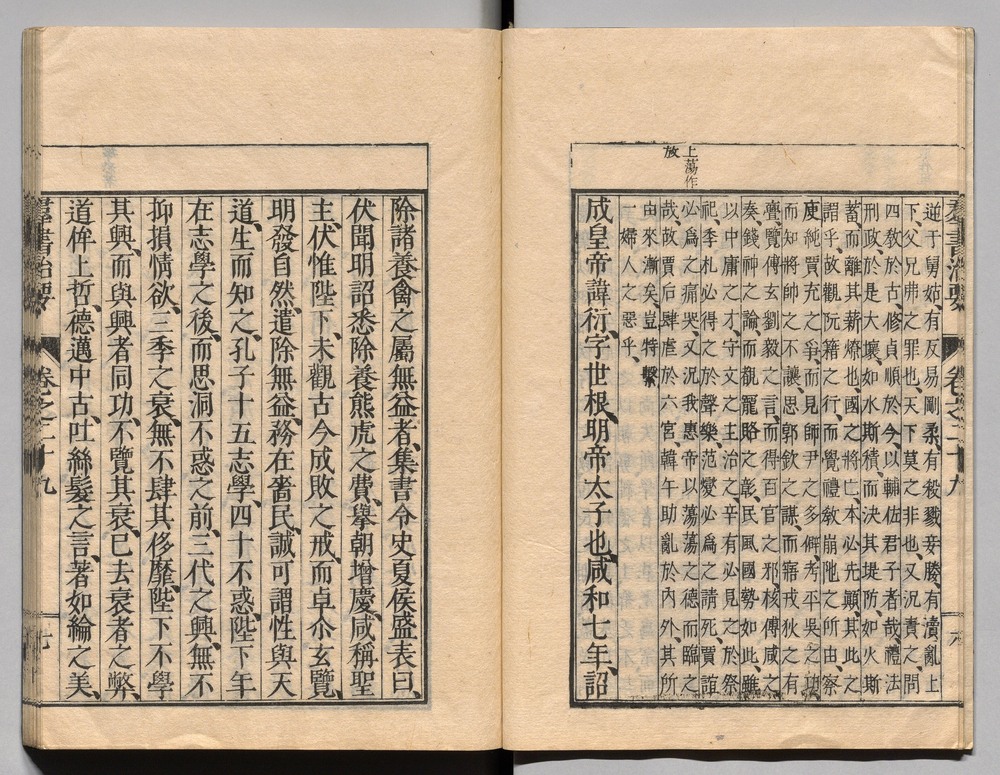 羣書治要 卷之二十九 六
逆于舅姑、有反易剛柔、有殺戮妾媵、有瀆亂上
下、父兄弗之罪也、天下莫之非也、又況責之、聞
四教於古、修貞順於今、以輔佐君子者哉、禮法
刑政、於是大壞、如水斯積、而決其堤防、如火斯
蓄、而離其薪燎也、國之將亡、本必先顚、其此之
謂乎、故觀阮籍之行、而覺禮教崩弛之所由、察
庾純賈充之爭、而見師尹之多僻、考平吳之功、
而知將帥之不讓、思郭欽之謀、而寤戎狄之有
舋、覽傅玄劉毅之言、而得百官之邪、核傅咸之
奏、錢神之論、而覩寵賂之彰、民風國勢如此、雖
以中庸之才、守文之主治之、辛有必見之於祭
祀、季札必得之於聲樂、范燮必爲之請死、賈誼
必爲之痛哭、又況我惠帝以蕩蕩之德、而臨之
哉、故賈后肆虐於六宮、韓午助亂於內外、其所
由來漸矣、豈特繫
一婦人之惡乎、
上蕩作
放
成皇帝諱衍、字世根、明帝太子也、咸和七年、詔
除諸養禽之屬無益者、集書令史夏侯盛表曰、
伏聞明詔悉除養熊虎之費、擧朝增慶、咸稱聖
主、伏惟陛下、未觀古今成敗之戒、而卓尒玄覽、
明發自然、遣除無益、務在嗇民、誠可謂性與天
道、生而知之、孔子十五志學、四十不惑、陛下年
在志學之後、而思洞不惑之前、三代之興、無不
抑損情欲、三季之衰、無不肆其侈靡、陛下不學
其興、而與興者同功、不覽其衰、已去衰者之弊、
道侔上哲、德邁中古、吐絲髮之言、著如綸之美、
羣書治要 卷之二十九 七